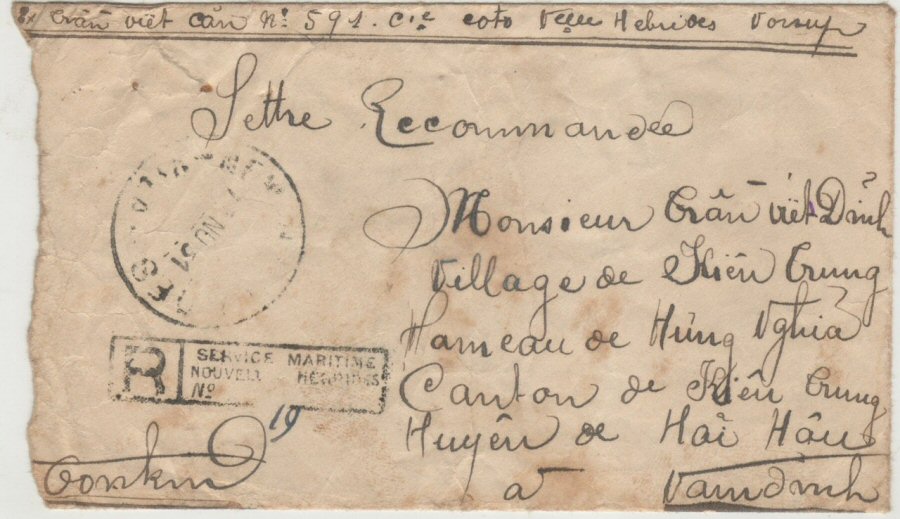 Trần viết cần Nº 591. Cie coto Nelles Hebrides
Lettre Recommandée
Monsieur Trần viết Dĩnh
Village de Kiên Trung
Hameau de Hưng Nghĩa
Canton de Kiên Trung
Huyện de Hải Hậu
à Namdinh
R
SERVICE MARITIME
NOUVELL HEBRIDES
Nº
19
Tonkin